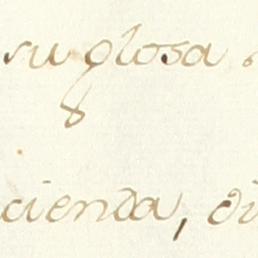 su glosa
cienda, di